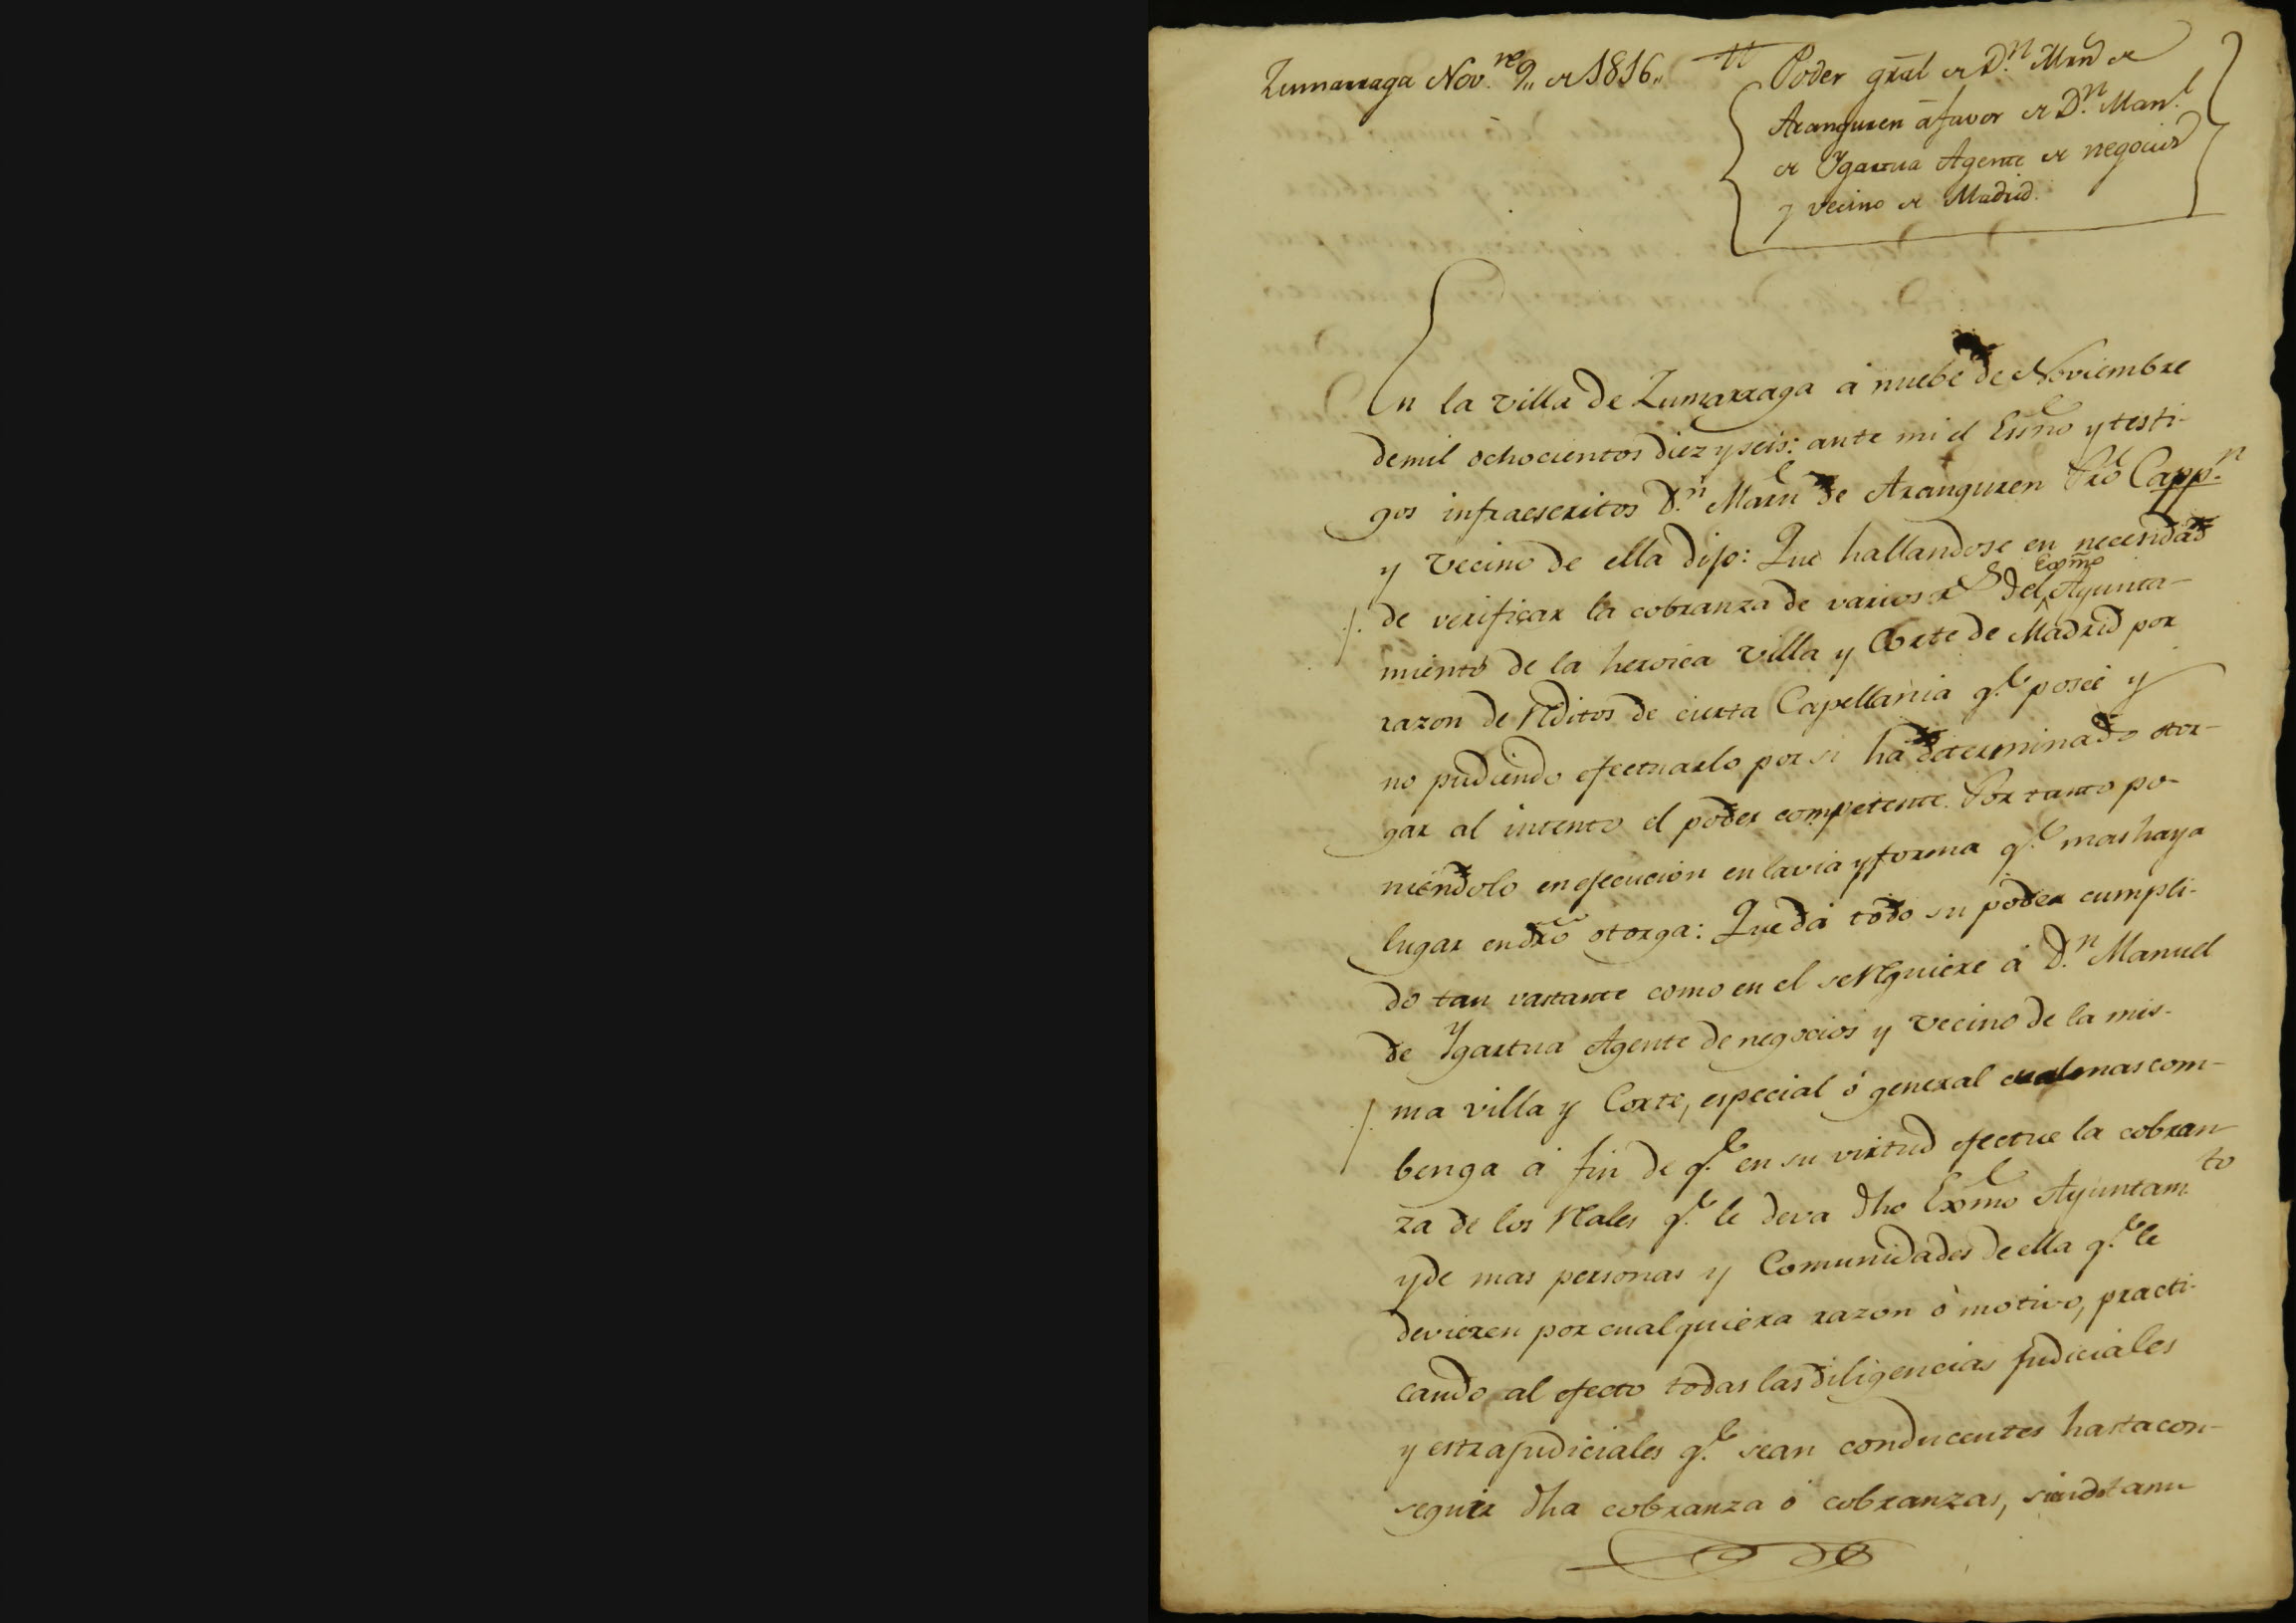 Zumarraga Nov.re 9,, de 1816,,
Poder gral de D.n Mrn de
Aranguren á favor de D.n Man.l
de Ygartua Agente de negocios
y vecino de Madrid.
En la villa de Zumarraga á nuebe de Noviembre
de mil ochocientos diez y seis: ante mi el Essno y testi-
gos infraescritos D.n Marn de Aranguren Pro Capp.n
y vecino de ella dijo: Que hallandose en necesidad
de verificar la cobranza de varios rs del Exmo Ayunta-
miento de la heroica villa y Corte de Madrid por
razon de Rditos de cierta Capellania q.e poseé y
no pudiendo efectuarlo por si ha determinado otor-
gar al intento el poder competente. Por tanto po-
niendolo en ejecucion en la via y forma q.e mas haya
lugar en dro otorga: Que dá todo su poder cumpli-
do tan vastante como en el se Rquiere á D.n Manuel
de Ygartua Agente de negocios y vecino de la mis-
ma villa y Corte, especial ó general cual mas com-
benga á fin de q.e en su virtud efectue la cobran
za de los Rales q.e le deva dho Exmo Ayuntam.to
y de mas personas y Comunidades de ella q.e le
devieren por cualquiera razon ó motivo, practi-
cando al efecto todas las diligencias judiciales
y estrajudiciales q.e sean conducentes hasta con-
seguir dha cobranza ó cobranzas, siendo